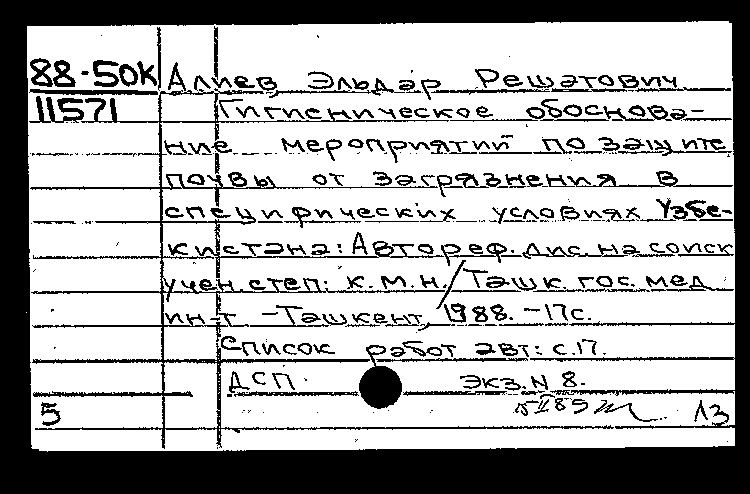 88-50К Алиев, Эльдар Решатович
11571 Гигиеническое обоснова-
ние мероприятий по защите
почвы от загрязнения в
специфических условиях Узбе-
кистана: Автореф. дис. на соиск
учен. степ.: к.м.н./Ташк. гос. мед
ин-т -Ташкент, 1988. -17с.
Список работ авт.: с.17.
ДСП. Экз. N 8.
5 13